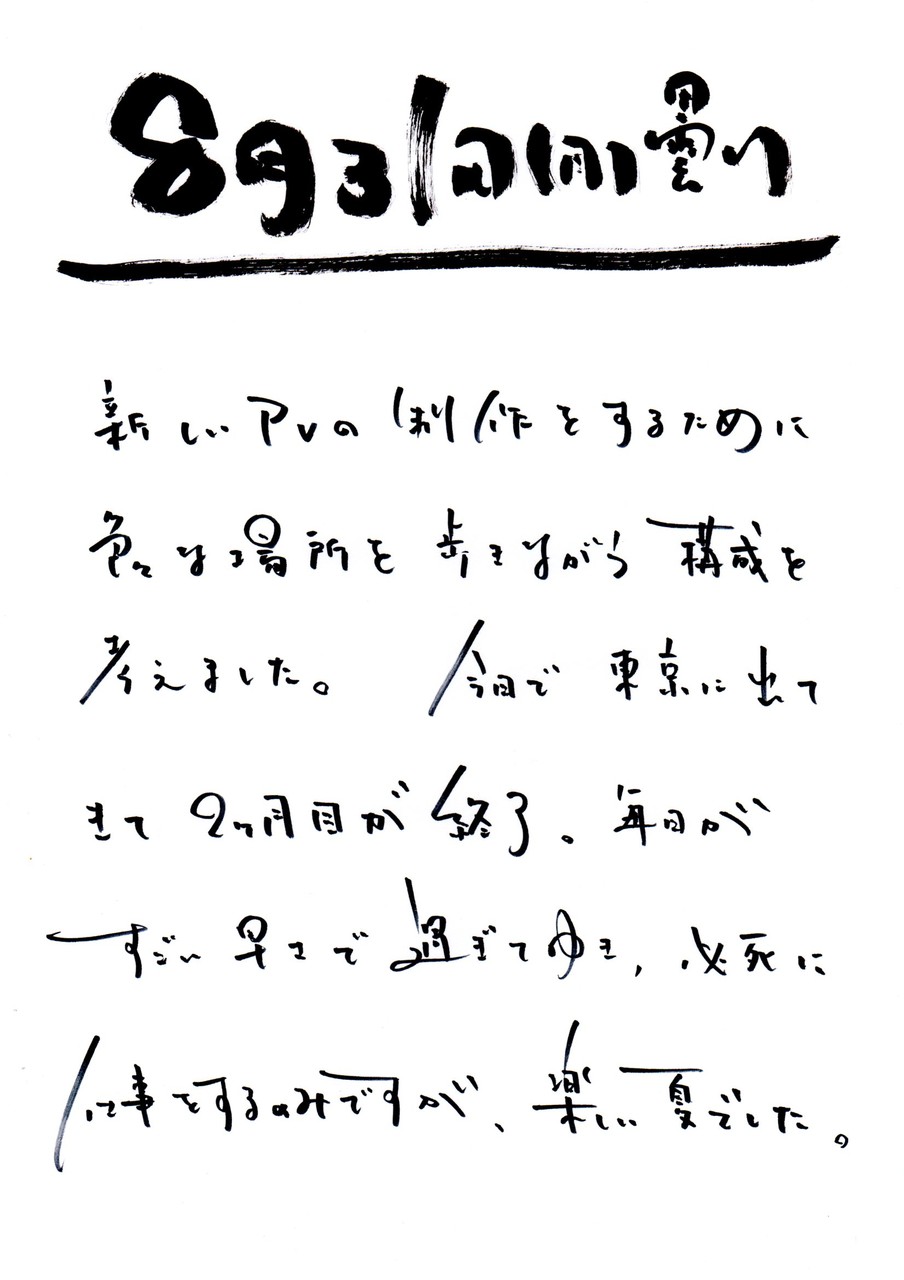 8月31日(月)曇り
新しいPVの制作をするために
色々な場所を歩きながら構成を
考えました。 今日で東京に出て
きて2ヶ月目が終了。毎日が
すごい早さで過ぎてゆき、必死に
仕事をするのみですが、楽しい夏でした。